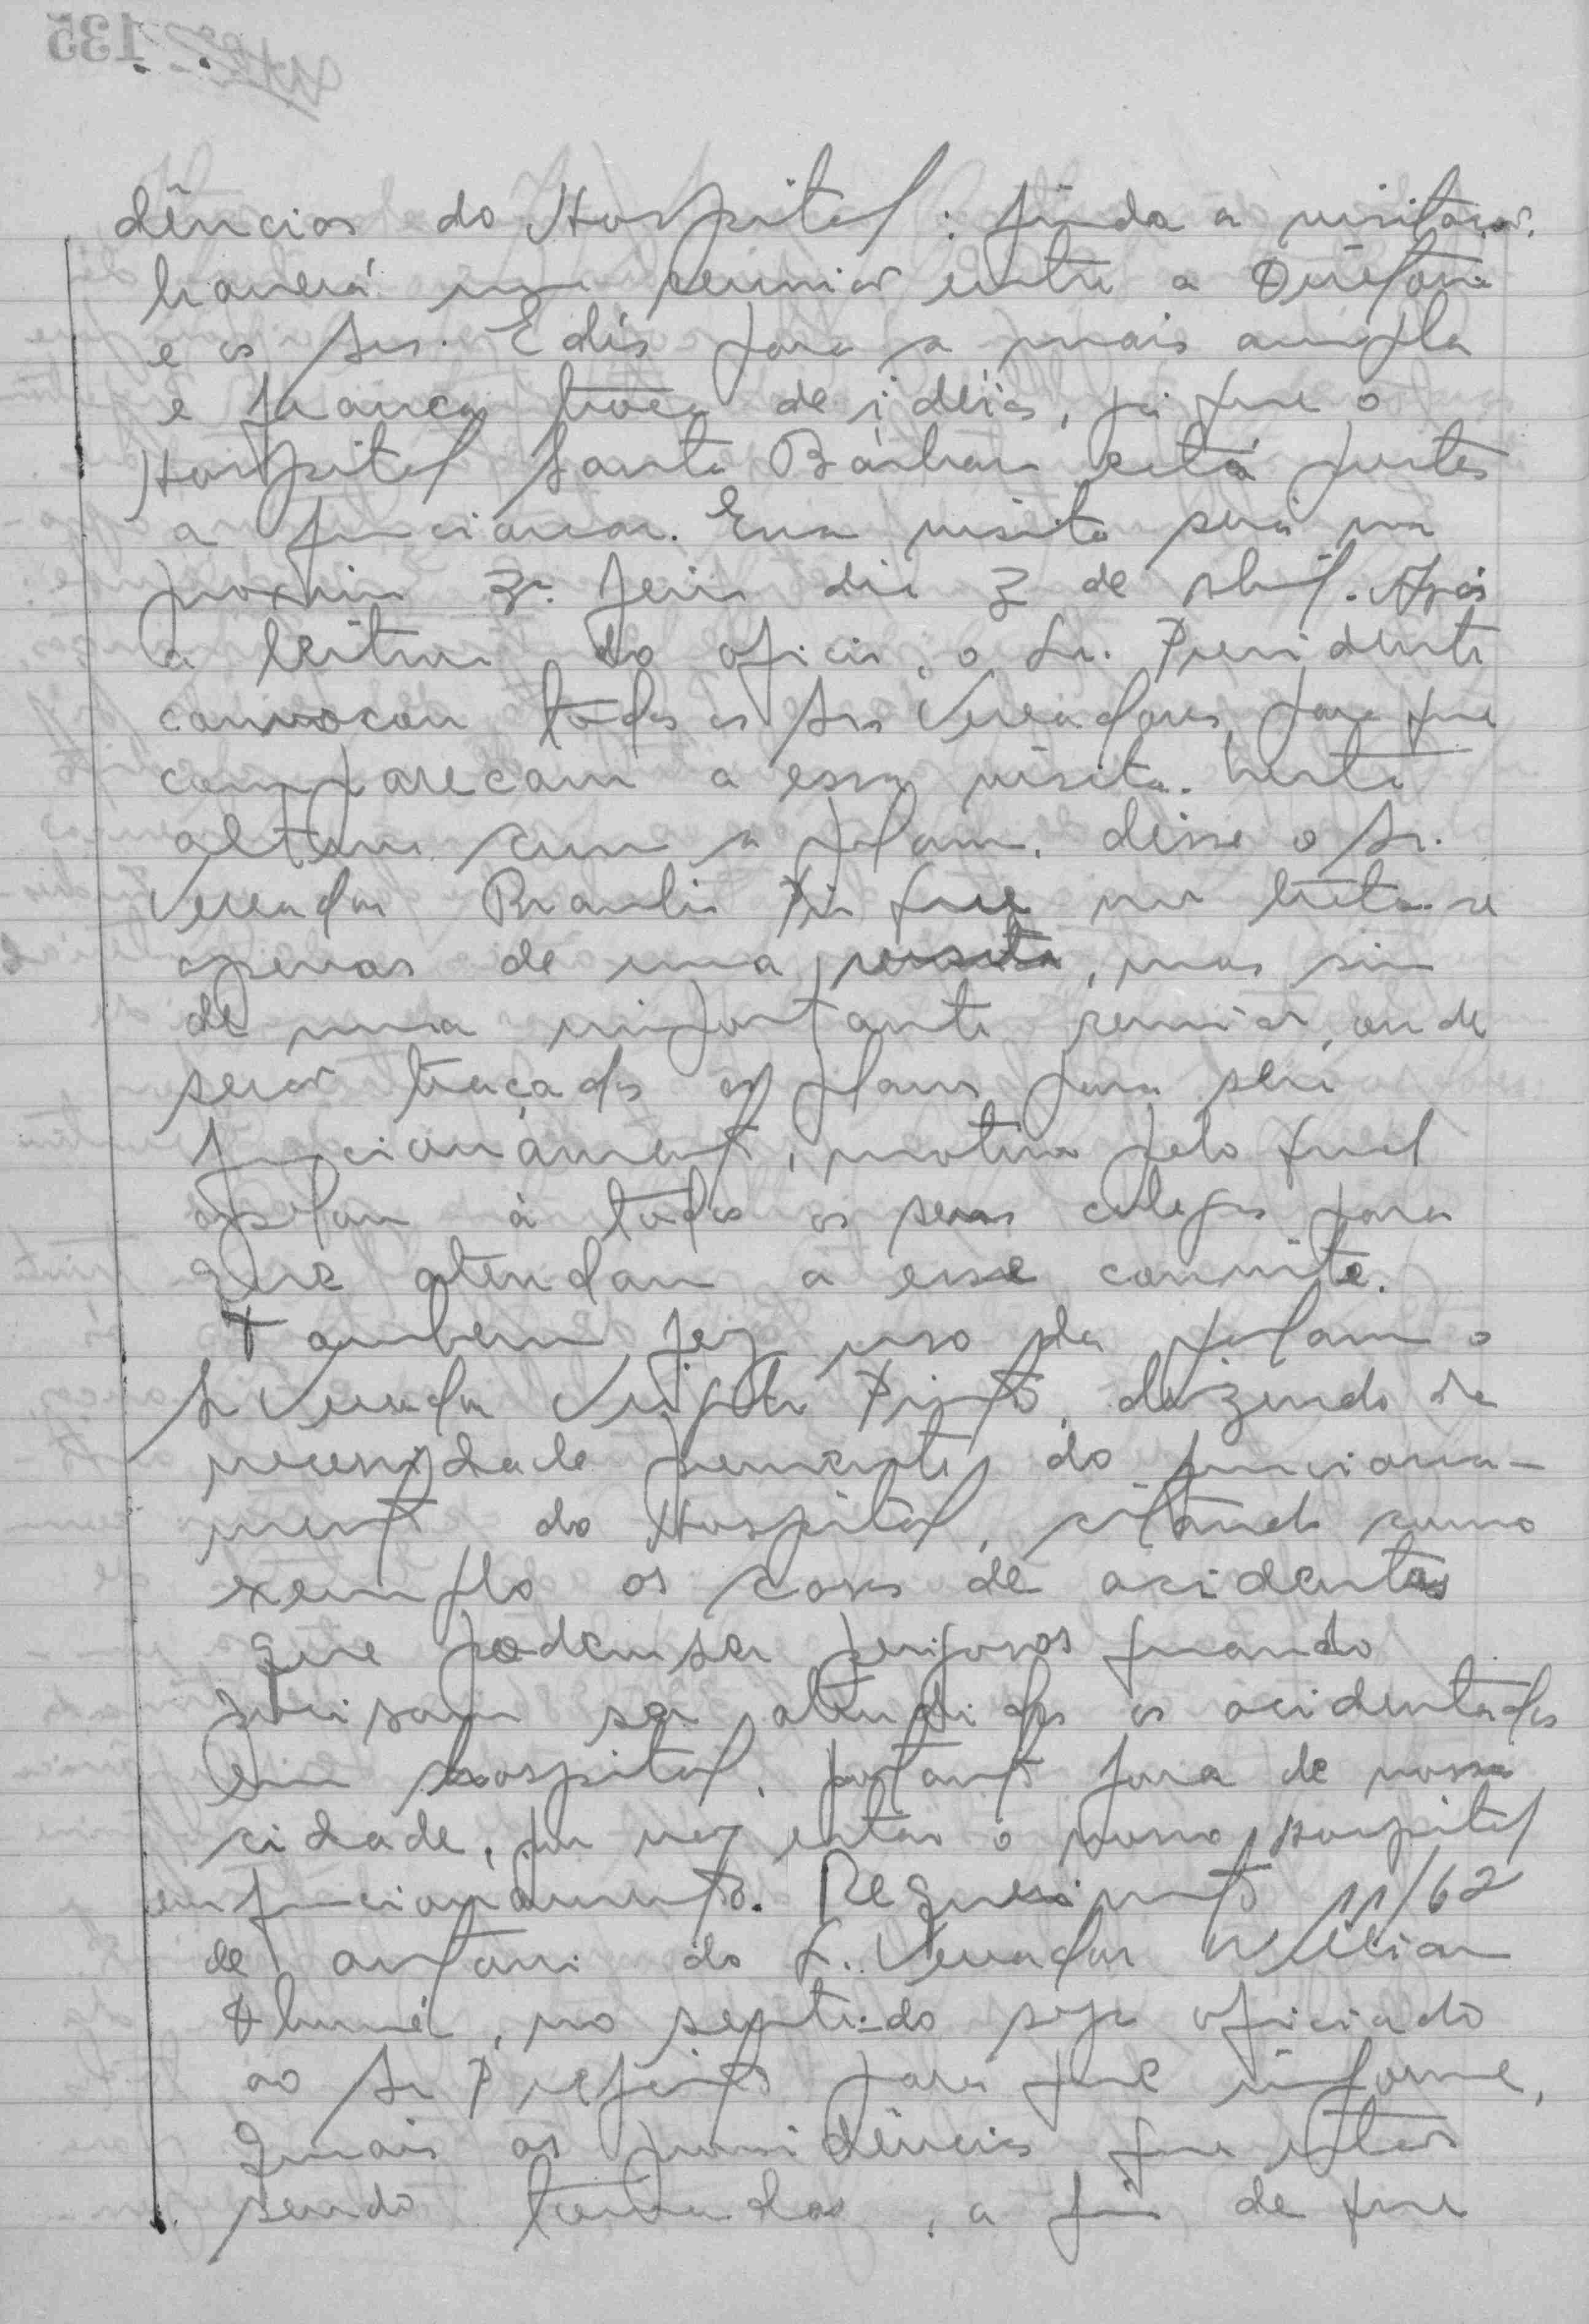 dências do Hospital: finda a visitação,
haverá uma reunião entre a Diretoria
e os Srs. Edis para a mais ampla
e franca troca de idéias, já que o
Hospital Santa Bárbara está prestes
a funcionar. Essa visita será na
proxima 3ª feira dia 3 de abril. Após
a leitura do oficio, o Sr. Presidente
convocou todos os Srs Vereadores, para que
compareçam a essa visita. Nesta
altura com a palavra, disse o Sr.
Vereador Braulio Pio que não trata-se
apenas de uma visita, mas sim
de uma importante reunião, onde
serão traçados os planos para seu
funcionamento, motivo pelo qual
apelou à todos os seus colegas para
que atendam a esse convite.
Tambem fez uso da palavra o
Sr Vereador Pinto, dizendo da
necessidade premente do funciona-
mento do Hospital, citando como
exemplo os casos de acidentes
que podem ser perigosos quando
precisam ser atendidos os acidentados
em hospital, portanto fora de nossa
cidade, por não estar o nosso hospital
em funcionamento. Requerimento 11/62
de autoria do Sr. Vereador Willian
, no sentido seja oficiado
ao Sr Prefeito para que informe,
quais as providências que estão
sendo tomadas, a fim de que